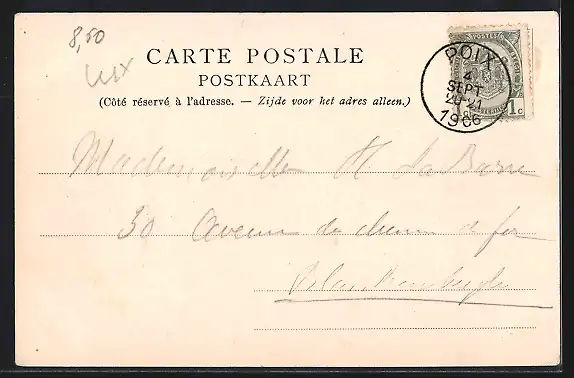 8,50
CARTE POSTALE
POSTKAART
(Côté réservé à l'adresse. — Zijde voor het adres alleen.)
POSTES
1 c
POIX
4
SEPT
20-21
1906
Mademoiselle H LaBarre
30 Avenue du chemin de fer
Blankenberghe